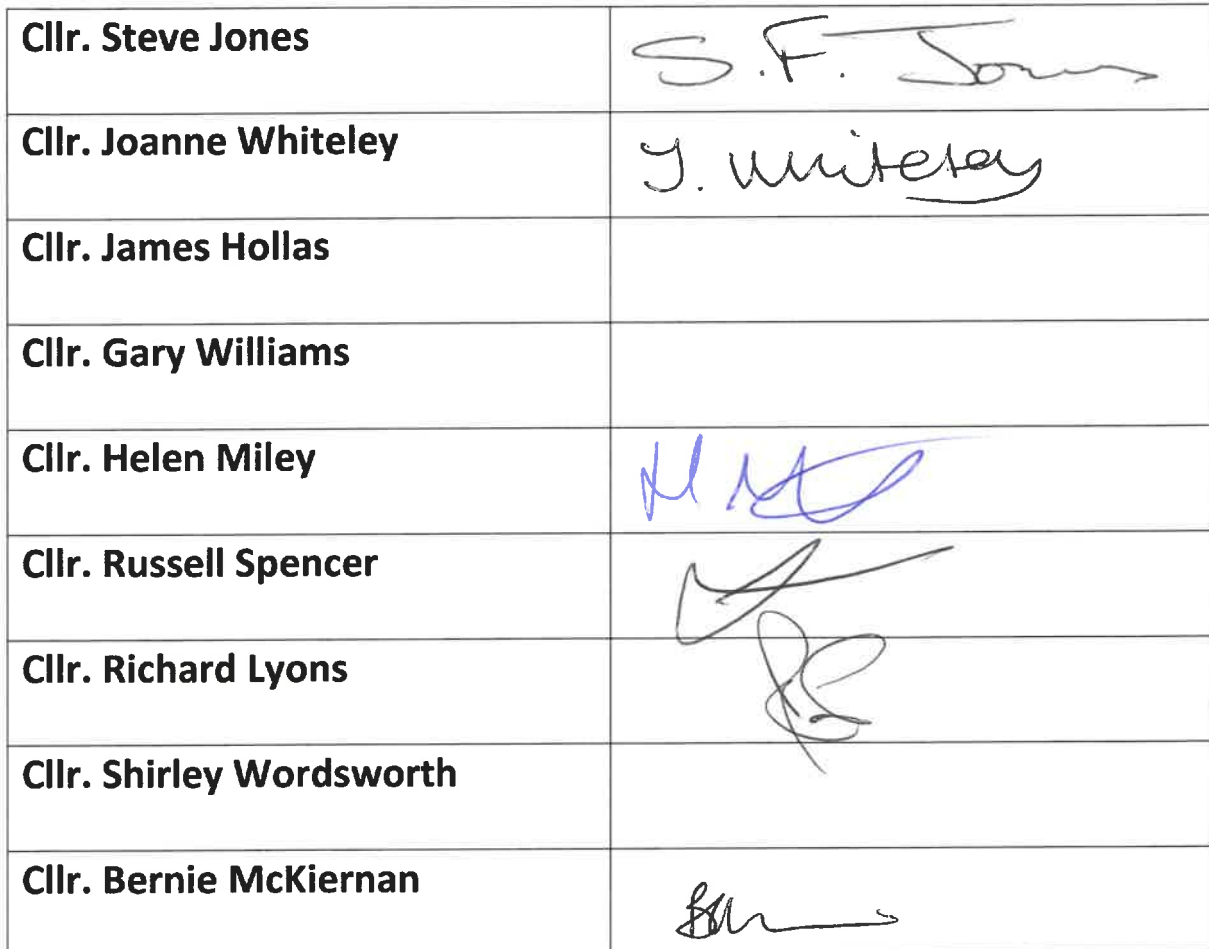 Cllr. Steve Jones
S.F. Jones
Cllr. Joanne Whiteley
J. Whiteley
Cllr. James Hollas
Cllr. Gary Williams
Cllr. Helen Miley
Cllr. Russell Spencer
Cllr. Richard Lyons
Cllr. Shirley Wordsworth
Cllr. Bernie McKiernan